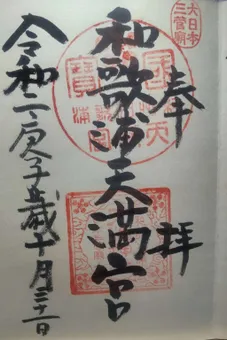 大日本
三菅廟
奉拝
和歌浦天満宮
令和二庚子歳十月